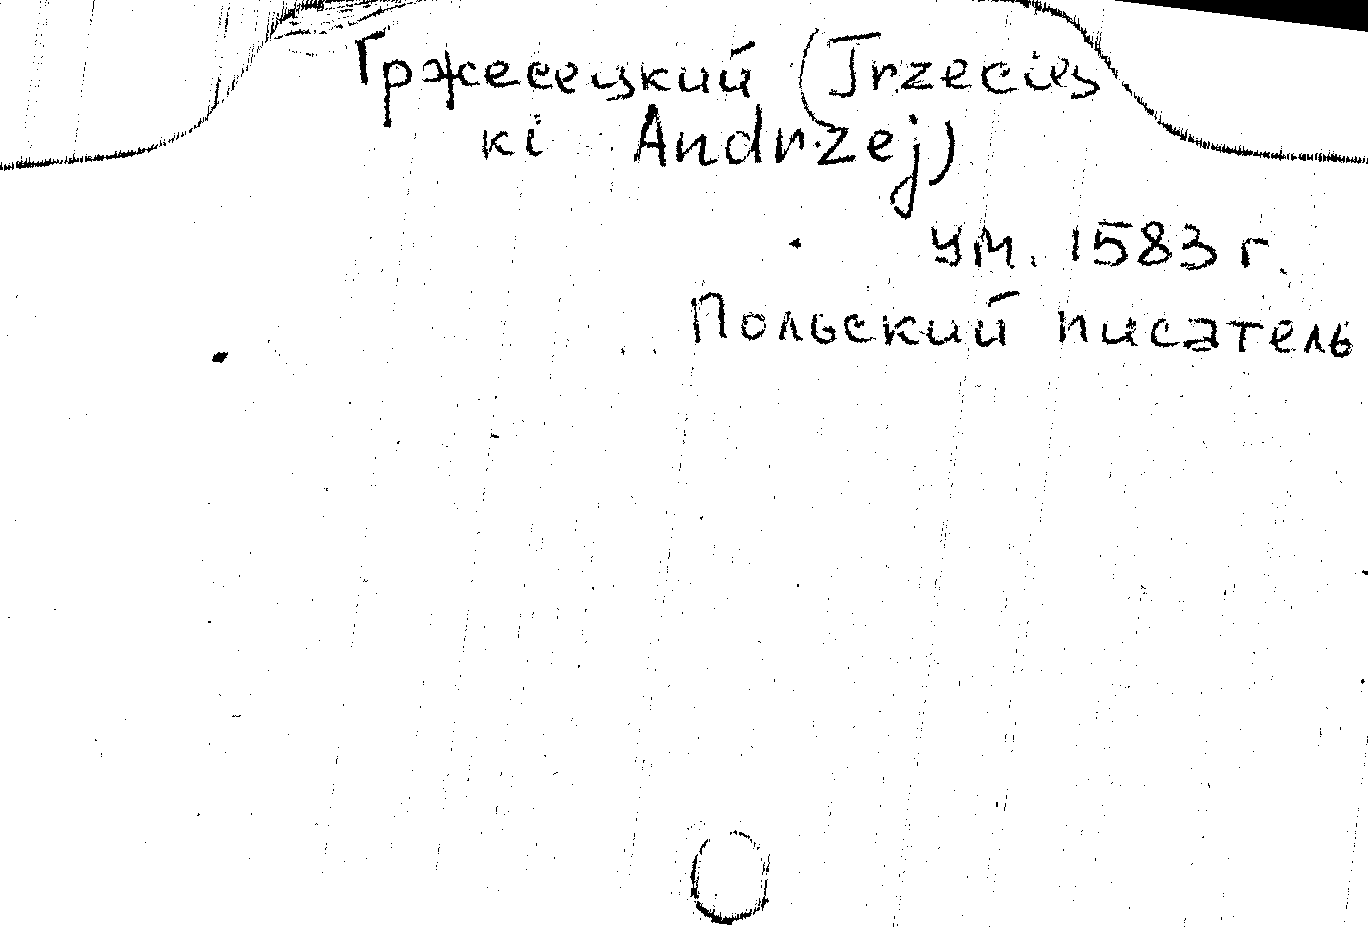 Гржесецкий (Trzecies
ki Andrzej)
ум. 1583 г.
Польский писатель